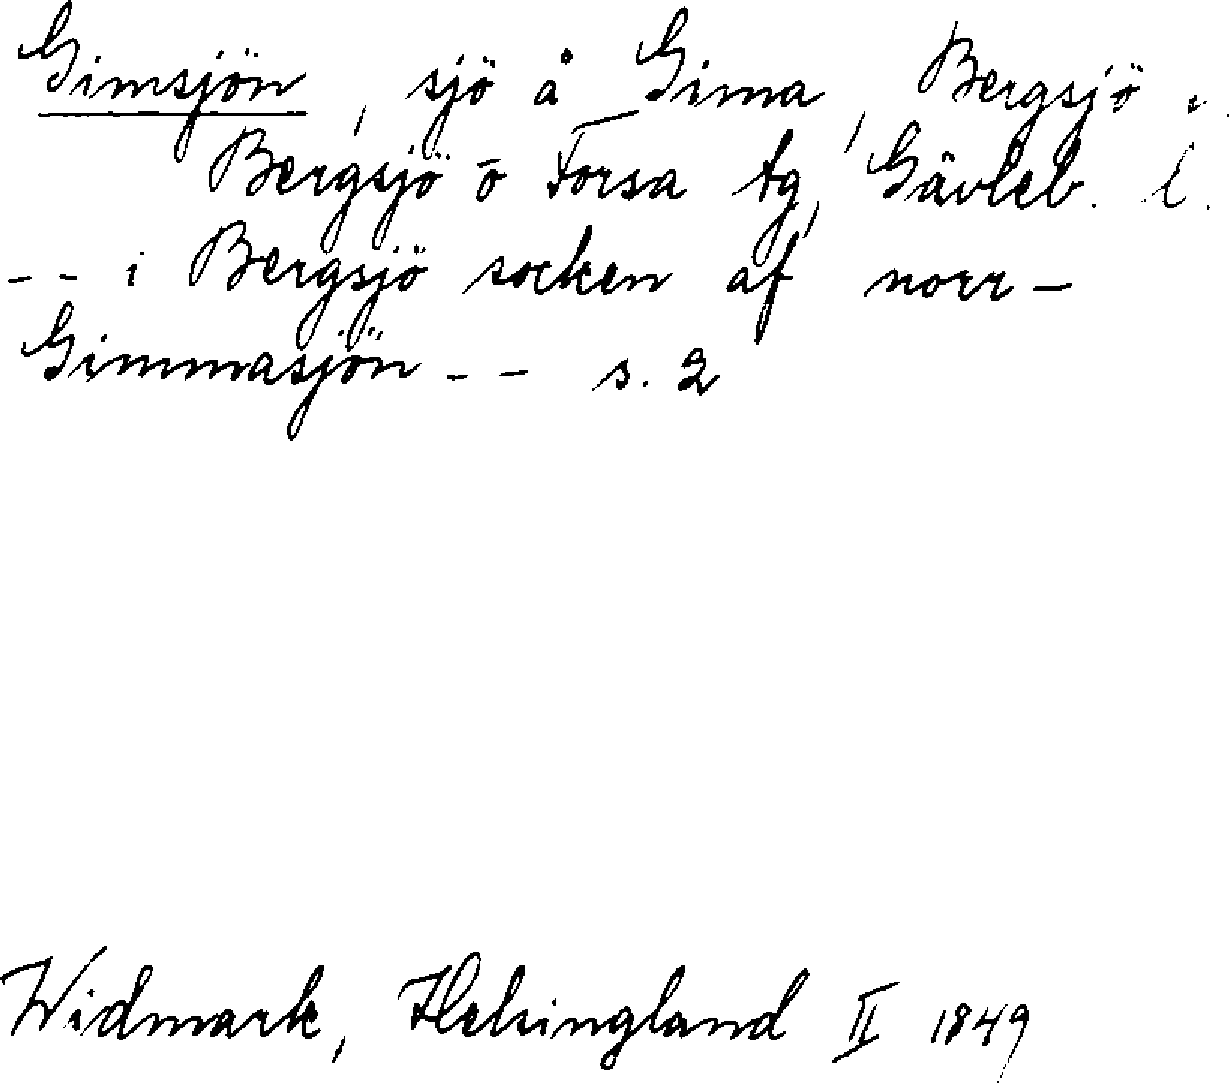 Gimsjön, sjö å Gima, Bergsjö s.
Bergsjö o Forsa tg, Gävleb. l.
-- i Bergsjö socken af norr-
Gimmasjön -- s. 2
Widmark, Helsingland II 1849